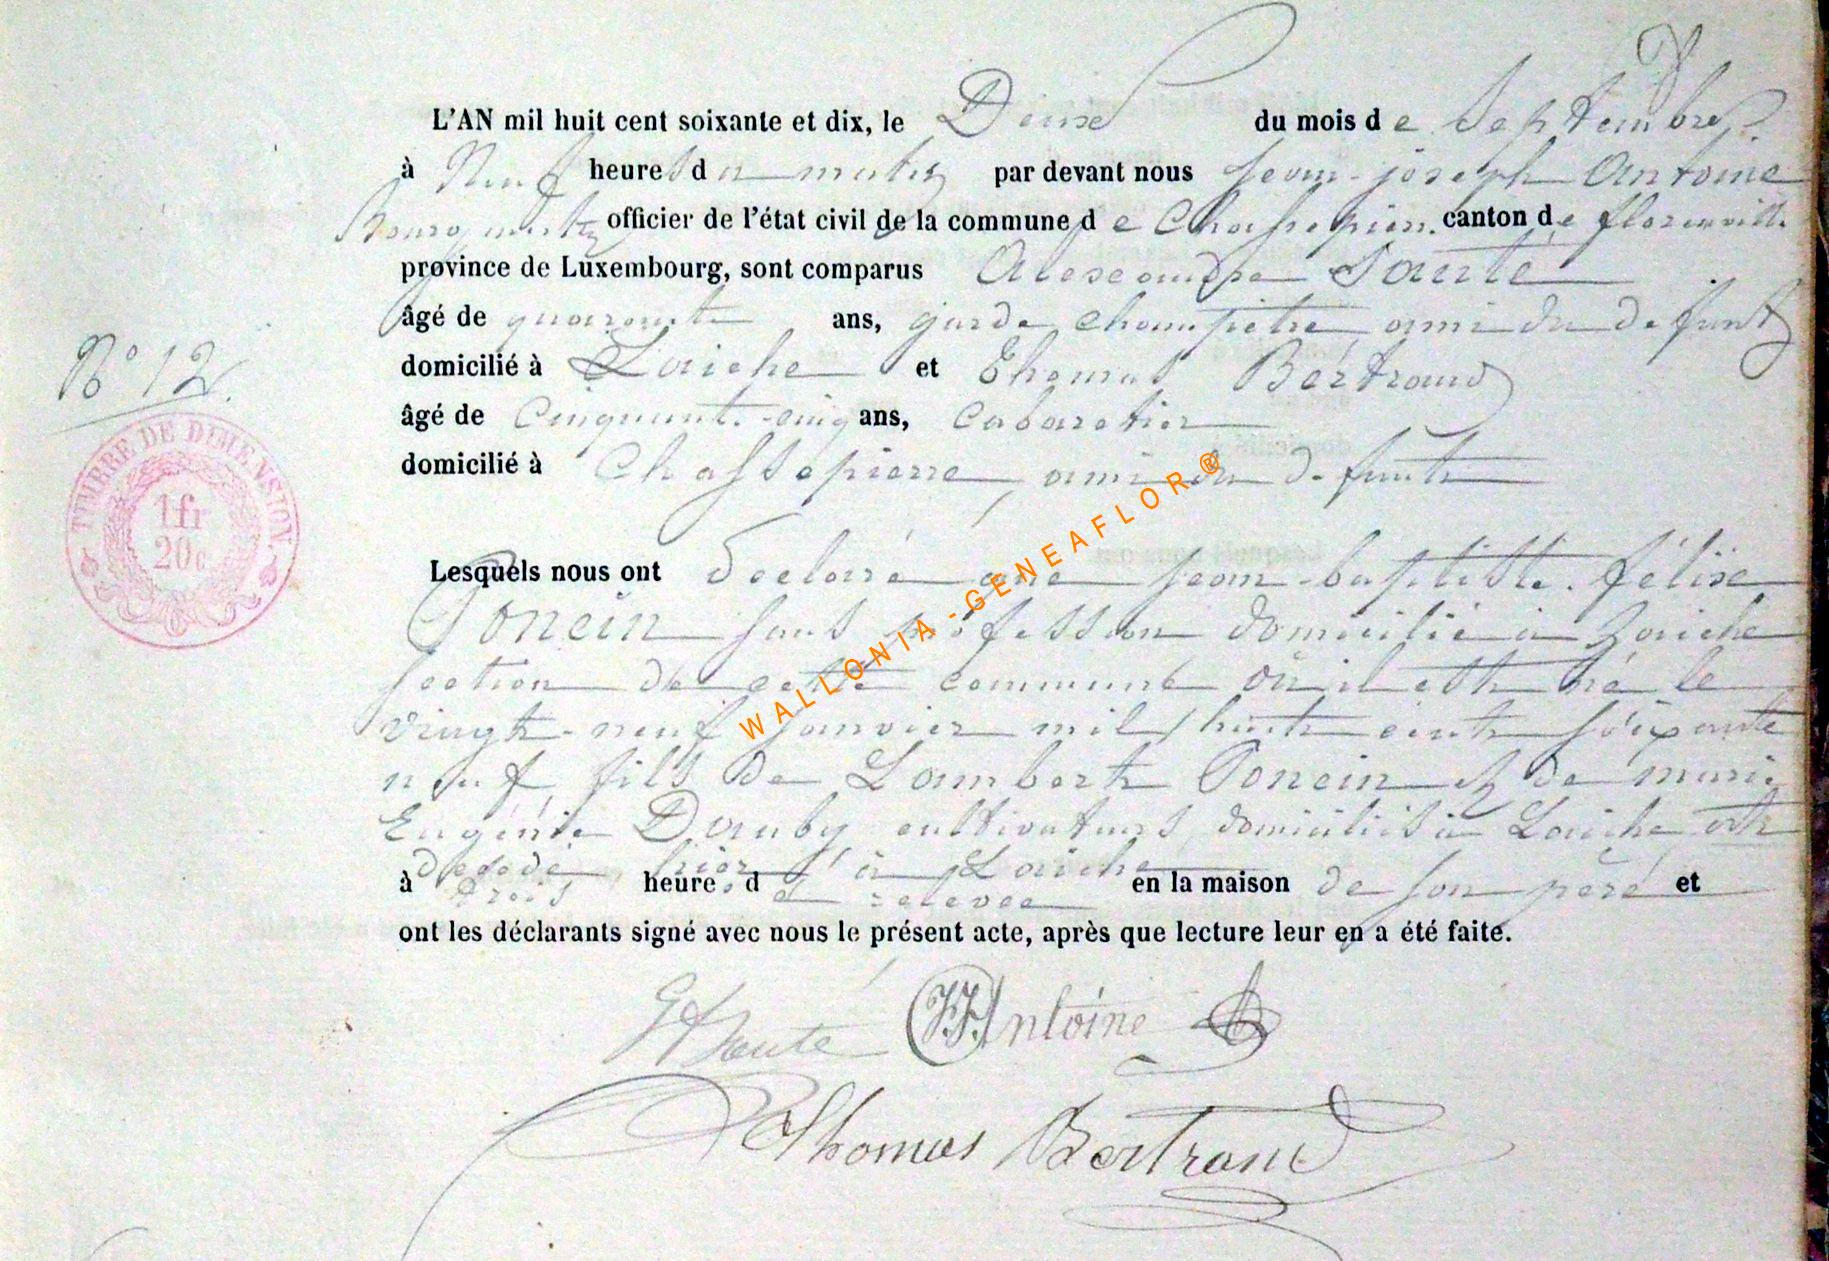 L'AN mil huit cent soixante et dix, le Deux du mois de Septembre
à Neuf heures du matin par devant nous jean-joseph Antoine
Bourgmestre officier de l'état civil de la commune de Chassepierre canton de florenville
province de Luxembourg, sont comparus Alexandre Santé
âgé de quarante ans, garde champêtre ami du defunt
N° 12
domicilié à Laiche et Thomas Bertrand
âgé de Cinquante-cinq ans, Cabaretier
domicilié à Chassepierre, ami du defunt
TIMBRE DE DIMENSION.
1 fr
20 c
Lesquels nous ont declaré que jean-baptiste félixe
Poncin sans profession domicilié à Laiche
section de cette commune où il est né le
vingt-neuf janvier mil huit cent soixante
neuf fils de Lambert Poncin et de marie
Eugénie Dauby cultivateurs domiciliés à Laiche est
décédé hier à Laiche
à trois heure. de relevée en la maison de son père et
ont les déclarants signé avec nous le présent acte, après que lecture leur en a été faite.
Santé J.J. Antoine
Thomas Bertrand
WALLONIA-GENEAFLOR®